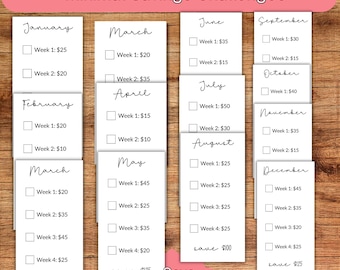 January
Week 1: $25
Week 2: $20
February
Week 1: $20
Week 2: $10
March
Week 1: $20
Week 2: $35
Week 3: $45
Week 4: $25
March
Week 1: $20
Week 2: $35
April
Week 1: $15
Week 2: $10
May
Week 1: $45
Week 2: $35
Week 3: $20
Week 4: $25
June
Week 1: $35
Week 2: $15
July
Week 1: $50
Week 2: $35
August
Week 1: $25
Week 2: $25
Week 3: $25
Week 4: $25
save $100
September
Week 1: $30
Week 2: $15
October
Week 1: $40
November
Week 1: $35
Week 2: $15
December
Week 1: $45
Week 2: $35
Week 3: $20
Week 4: $25
save $125